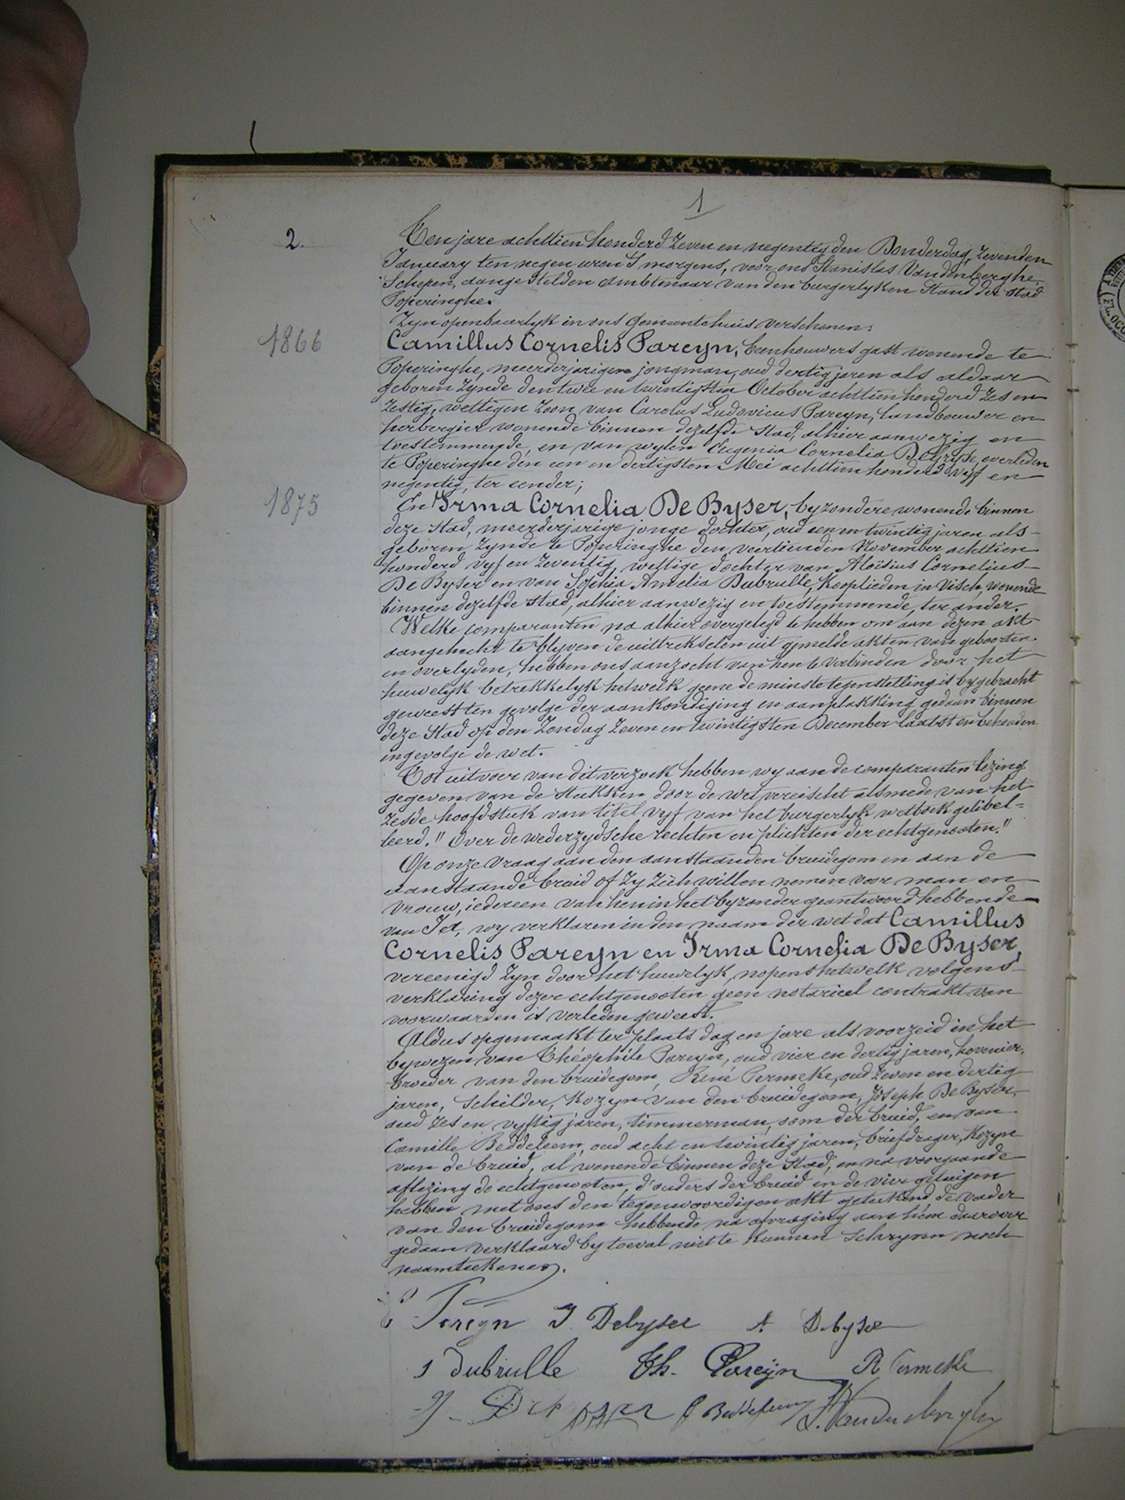 1
2.
Ten jare achttien honderd zeven en negentig den Donderdag, zevenden
January ten negen uren 's morgens, voor ons Stanislas Vandenberghe,
Schepen, aangestelden ambtenaar van den burgerlyken Stand der stad
Poperinghe.
Zyn openbaarlyk in ons Gemeentehuis verschenen:
1866
Camillus Cornelis Pareyn, beenhouwers gast wonende te
Poperinghe, meerderjarigen jongman, oud dertig jaren als aldaar
geboren zynde den twee en twintigsten October achttien honderd zes en
zestig, wettigen zoon van Carolus Ludovicus Pareyn, landbouwer en
herbergier wonende binnen dezelfde stad, alhier aanwezig en
toestemmende, en van wylen Eugenia Cornelia overleden
te Poperinghe den een en dertigsten Mei achttien honderd vyf en
negentig, ter eender;
1875
En Irma Cornelia De Byser, byzondere wonende binnen
deze stad, meerderjarige jonge dochter, oud een en twintig jaren als
geboren zynde te Poperinghe den veertienden November achttien
honderd vyf en zeventig, wettige dochter van Aloïsius Cornelius
De Byser en van Sophia Amelia Dubrulle, kooplieden in visch, wonende
binnen dezelfde stad, alhier aanwezig en toestemmende, ter ander.
Welke comparanten na alhier overgelegd te hebben om aan dezen akt
aangehecht te blyven de uittrekselen uit gemelde akten van geboorten
en overlyden, hebben ons aanzocht van hen te verbinden door het
huwelyk betrekkelyk hetwelk geene de minste tegenstelling is bygebracht
geweest ten gevolge der aankondiging en aanplakking gedaan binnen
deze stad op den Zondag zeven en twintigsten December laatst en
ingevolge de wet.
Tot uitvoer van dit verzoek hebben wy aan de comparanten lezing
gegeven van de stukken door de wet vereischt alsmede van het
zesde hoofdstuk van titel vyf van het burgerlyk wetboek getibel-
leerd. "Over de wederzydsche rechten en plichten der echtgenooten."
Op onze vraag aan den aanstaanden bruidegom en aan de
aanstaande bruid of zy zich willen nemen voor man en
vrouw, iedereen van hen in het byzonder geantwoord hebbende
van Ja, wy verklaren in den naam der wet dat Camillus
Cornelis Pareyn en Irma Cornelia De Byser,
vereenigd zyn door het huwelyk, nopens hetwelk volgens
verklaring dezer echtgenooten geen notarieel contrakt van
voorwaarden is verleden geweest.
Aldus opgemaakt ter plaats dag en jare als voorzeid in het
bywezen van Theophile Pareyn, oud vier en dertig jaren, hovenier,
broeder van den bruidegom, René Permeke, oud zeven en dertig
jaren, Schilder, kozyn van den bruidegom, Joseph De Byser,
oud zes en vyftig jaren, timmerman, oom der bruid, en van
Camille Beddeleem, oud acht en twintig jaren, briefdrager, kozyn
van de bruid, al wonende binnen deze stad, en na voorgaande
aflezing de echtgenooten, d'ouders der bruid en de vier getuigen
hebben met ons den tegenwoordigen akt geteekend de vader
van den bruidegom hebbende na afvraging aan hem daarover
gedaan verklaard by toeval niet te kunnen schryven noch
naamteekenen.
Pareyn I. Debyser A. Debyser
S Dubrulle Th. Pareyn R Permeke